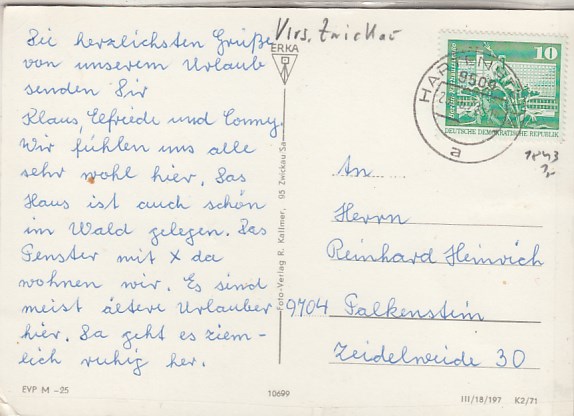 Virs. Zwickau
Die herzlichsten Grüße
von unserem Urlaub
senden Dir
Klaus, Elfriede und Conny.
Wir fühlen uns alle
sehr wohl hier. Das
Haus ist auch schön
im Wald gelegen. Das
Fenster mit X da
wohnen wir. Es sind
meist ältere Urlauber
hier. Da geht es ziem-
lich ruhig her.
EVP M -25
ERKA
Foto-Verlag R. Kallmer, 95 Zwickau Sa
10699
10
DEUTSCHE DEMOKRATISCHE REPUBLIK
9509
a
1843
An
Herrn
Reinhard Heinrich
9704 Falkenstein
Zeidelweide 30
III/18/197 K2/71